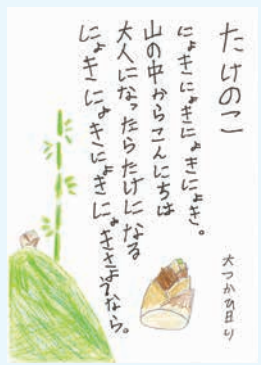 たけのこ
大つかひより
にょきにょきにょきにょき。
山の中からこんにちは
大人になったらたけになる
にょきにょきにょきにょきさようなら。